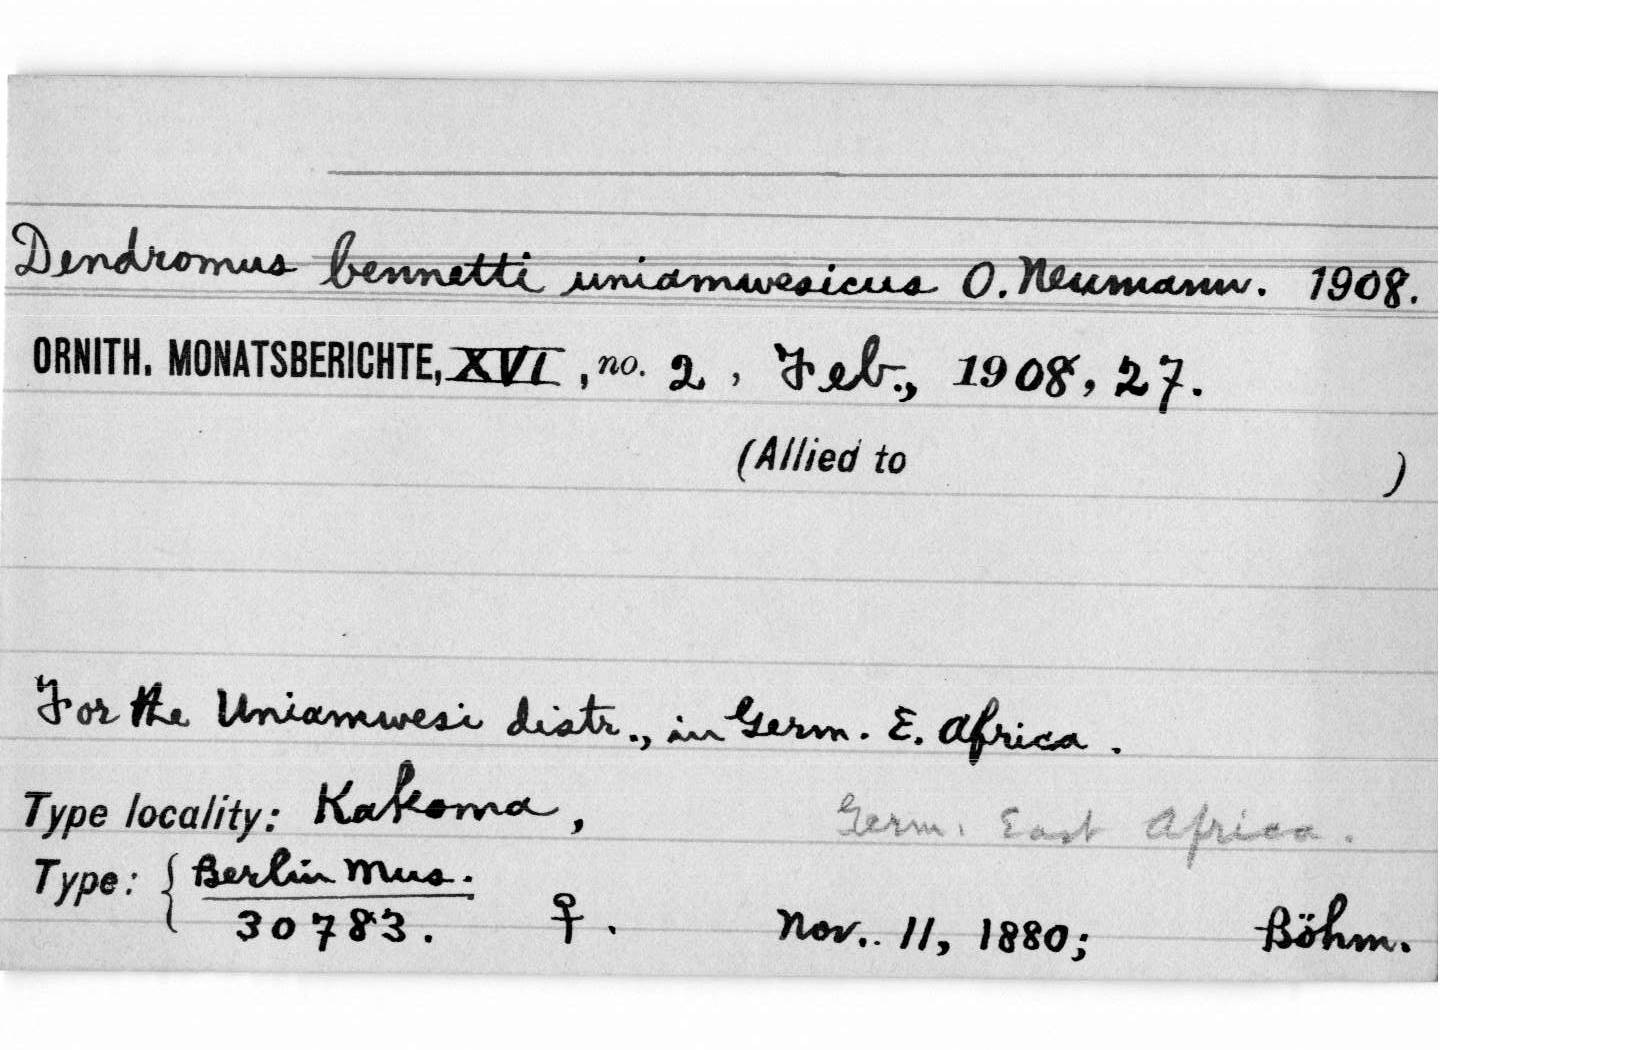 Dendromus bennetti uniamwesicus O. Neumann. 1908.
ORNITH. MONATSBERICHTE, XVI, no. 2, Feb., 1908, 27.
(Allied to )
For the Uniamwesi distr., in Germ. E. Africa.
Type locality: Kakoma, Germ. East Africa.
Type: { Berlin Mus.
30783. ♀. Nov. 11, 1880; Böhm.